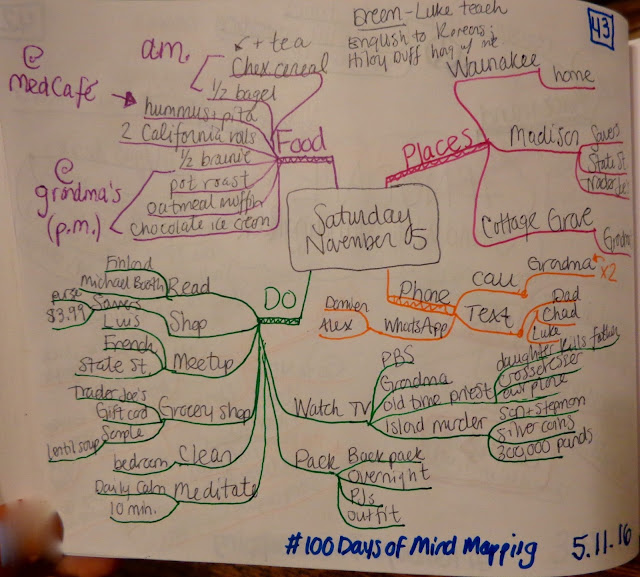 Dream - Luke teach
English to Koreans;
Hilary Duff hang w/ me
43
@
MedCafé
a.m.
+ tea
Chex cereal
1/2 bagel
hummus + pita
2 California rolls
1/2 brainie
@
grandma's
(p.m.)
pot roast
oatmeal muffin
chocolate ice cream
Food
Places
Waunakee
home
Madison
Savers
State St
Trader Joe
Cottage Grove
Grandma
Saturday
November 5
Phone
Call
Grandma
x2
Text
Dad
Chad
Luke
WhatsApp
Damien
Alex
DO
Read
Finland
Michael Booth
Shop
Savers
$3.99
Meetup
French
State St.
Grocery shop
Trader Joe's
Gift card
Sample
Lentil soup
Clean
bedroom
Meditate
Daily Calm
10 min.
Watch TV
PBS
Grandma
old time priest
daughter kills father
Crossdresser
Island murder
Son + Stepmom
Silver coins
300,000 pounds
Pack
Backpack
Overnight
PJs
outfit
#100 Days of Mind Mapping
5.11.16